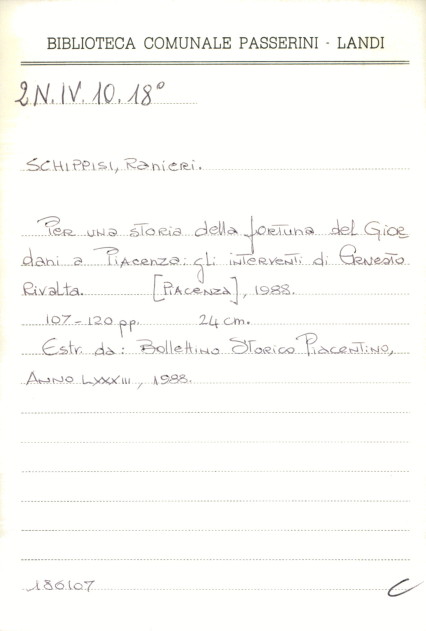 BIBLIOTECA COMUNALE PASSERINI - LANDI
2N.IV.10.18°
SCHIPPISI, Ranieri.
Per una storia della fortuna del Gior
dani a Piacenza: gli interventi di Ernesto
Rivalta. [Piacenza], 1988.
107-120 pp. 24 cm.
Estr. da: Bollettino Storico Piacentino,
Anno LXXXIII, 1988.
186107 C